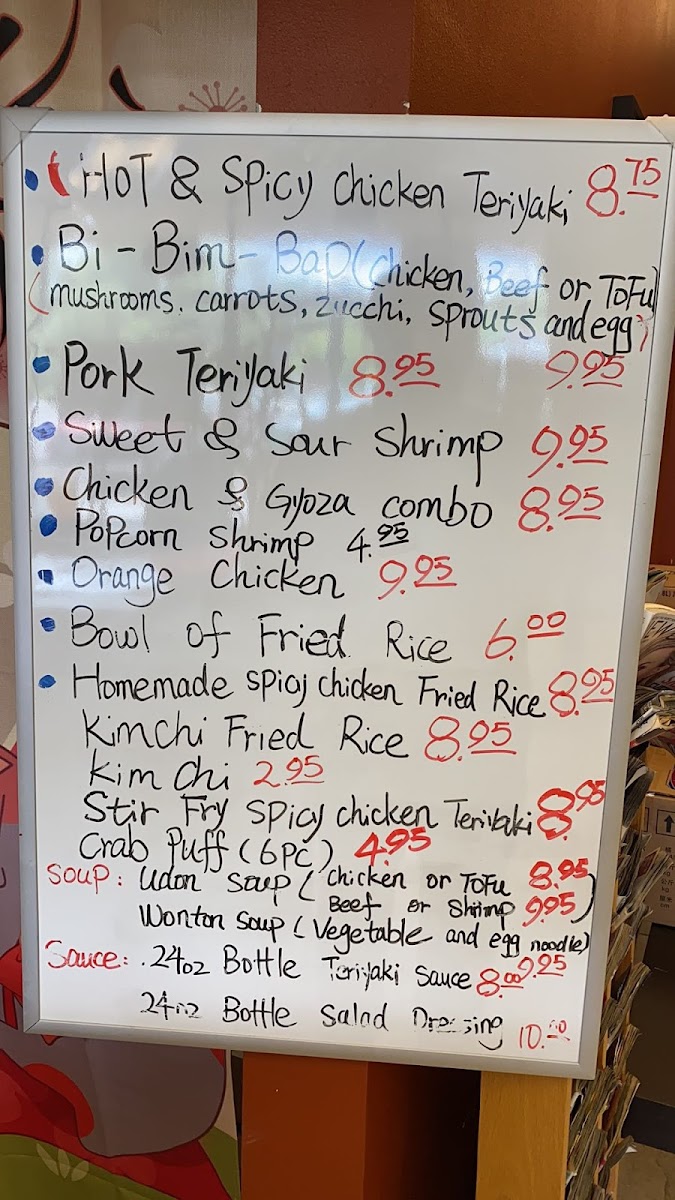 HOT & Spicy chicken Teriyaki 8.75
Bi - Bim - Bap (chicken, Beef or ToFu)
(mushrooms. carrots, zucchi, sprouts and egg)
Pork Teriyaki 8.95 9.95
Sweet & Sour Shrimp 9.95
Chicken & Gyoza combo 8.95
Popcorn Shrimp 4.95
Orange Chicken 9.95
Bowl of Fried Rice 6.00
Homemade spicy chicken Fried Rice 8.95
Kimchi Fried Rice 8.95
Kim chi 2.95
Stir Fry spicy chicken Teriyaki 8.95
Crab Puff (6PC) 4.95
Soup: Udon Soup (chicken or ToFu 8.95
Beef or Shrimp 9.95)
Wonton Soup (Vegetable and egg noodle)
9.95
Sauce: .24oz Bottle Teriyaki sauce 8.00
24oz Bottle Salad Dressing 10.00